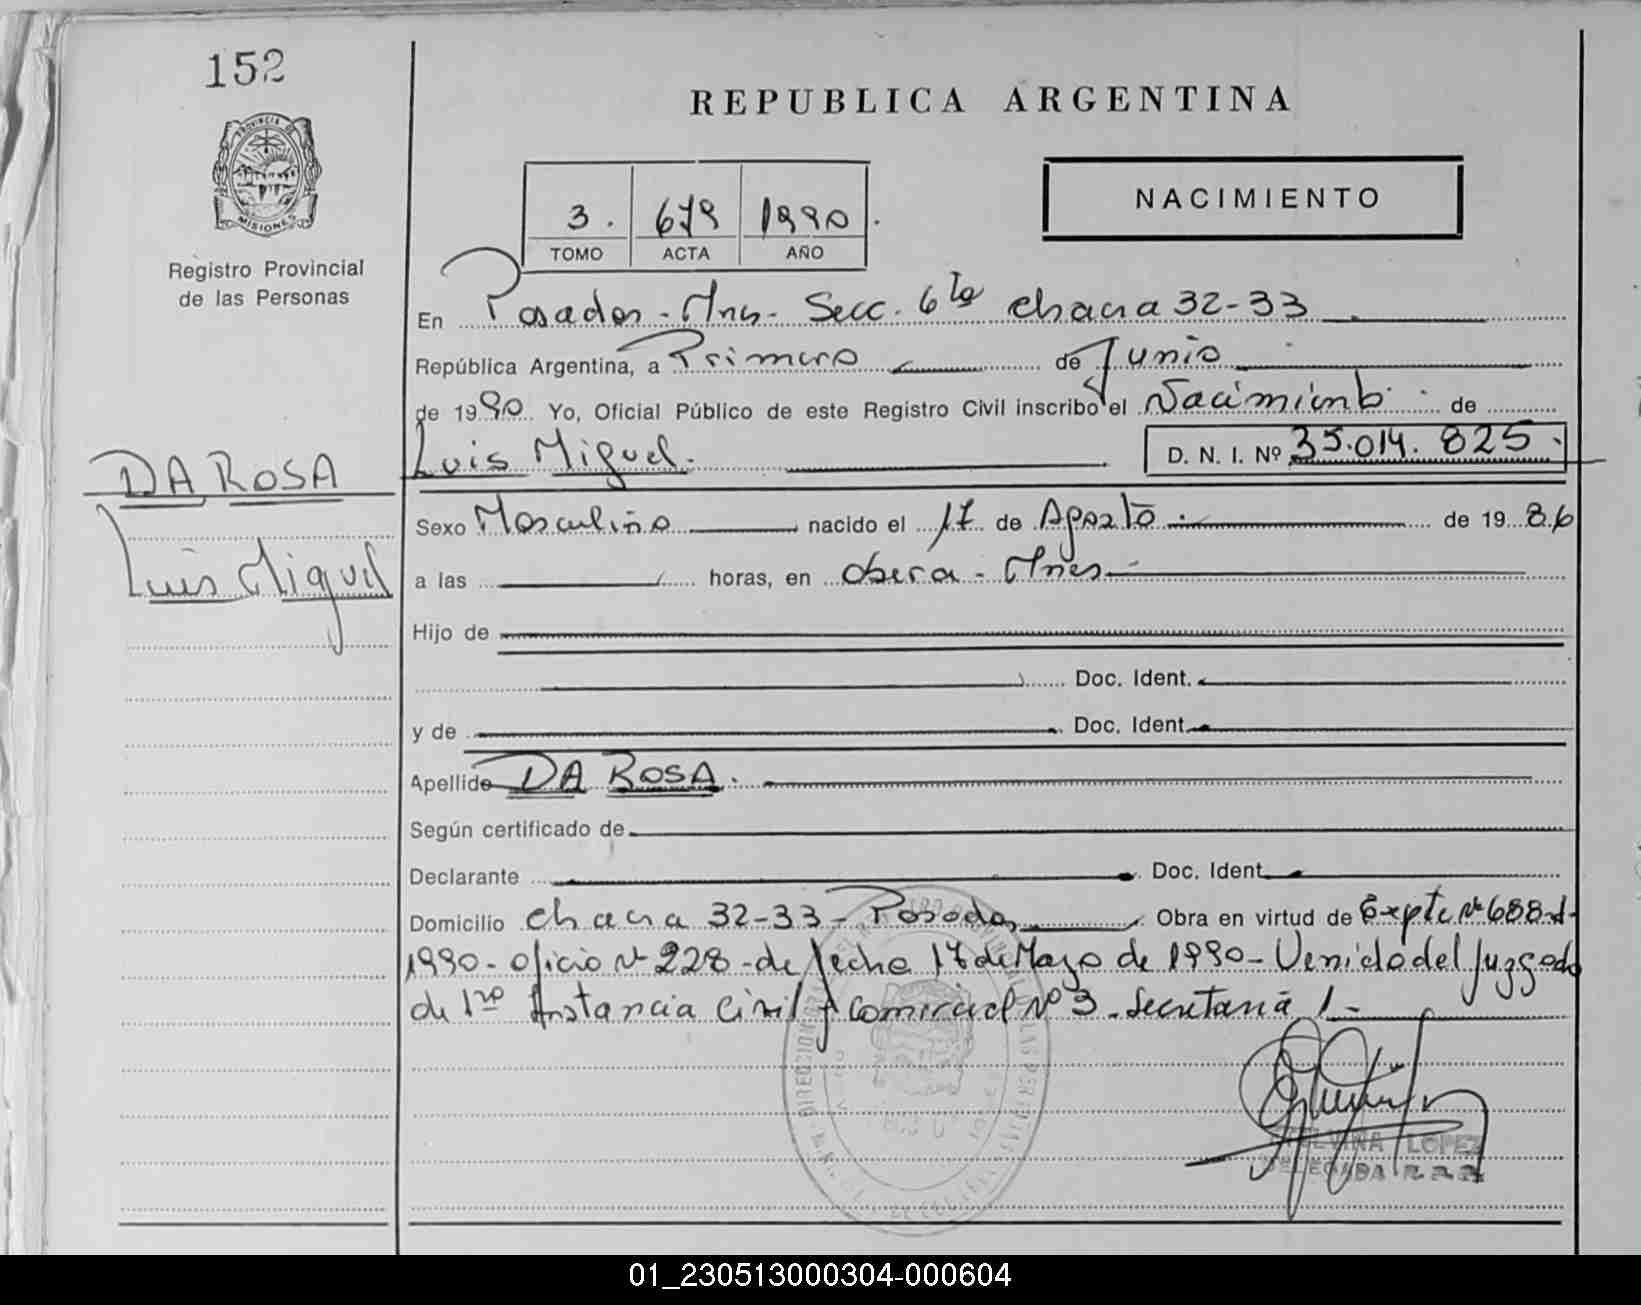 152
REPUBLICA ARGENTINA
PROVINCIA DE
MISIONES
Registro Provincial
de las Personas
NACIMIENTO
3. 679 1990.
TOMO ACTA AÑO
En Posadas - Mnes - Secc. 6ta chacra 32-33
República Argentina, a Primero de Junio
de 1990. Yo, Oficial Público de este Registro Civil inscribo el Nacimiento de
DA ROSA
Luis Miguel
Luis Miguel. D. N. I. Nº 35.014.825.
Sexo Masculino nacido el 17 de Agosto de 1986
a las horas, en Obera - Mnes
Hijo de
Doc. Ident.
y de Doc. Ident.
Apellido DA ROSA.
Según certificado de
Declarante Doc. Ident.
Domicilio chacra 32-33 - Posadas Obra en virtud de Expte Nº 688-
1990 - oficio Nº 228 - de fecha 17 de Mayo de 1990 - Venido del Juzgado
de 1ra Instancia Civil y Comercial Nº 3 - Secretaria 1 -
ETELVINA LOPEZ
DELEGADA
01_230513000304-000604